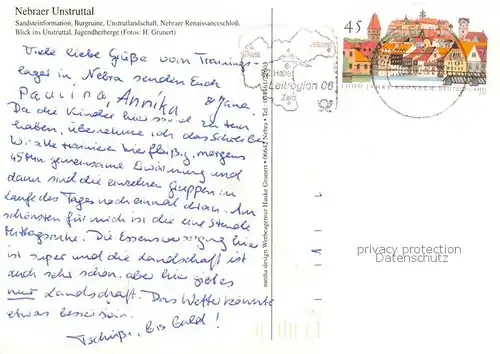 Nebraer Unstruttal
Sandsteininformation, Burgruine, Unstrutlandschaft, Nebraer Renaissanceschloß,
Blick ins Unstruttal, Jugendherberge (Fotos: H. Grunert)
Viele liebe Grüße vom Trainings-
lager in Nebra senden Euch
Paulina, Annika & Jana.
Da die Kinder hier so viel zu tun
haben, übernehme ich das Schreiben.
Wir alle trainieren hier fleißig, morgens
45 Min. gemeinsame Erwärmung und
dann sind die einzelnen Gruppen im
Laufe des Tages noch einmal dran. Am
schönsten für mich ist die eine Stunde
Mittagsruhe. Die Essensversorgung hier
ist super und die Landschaft ist
auch sehr schön, aber hier gibt es
nur Landschaft. Das Wetter könnte
etwas besser sein.
Tschüß, bis bald!
media design Werbeagentur Hauke Grunert • 06642 Nebra • Tel.
Halle
Leitregion 06
Zeitz
45
1000 JAHRE KRONACH DEUTSCHLAND
privacy protection
Datenschutz